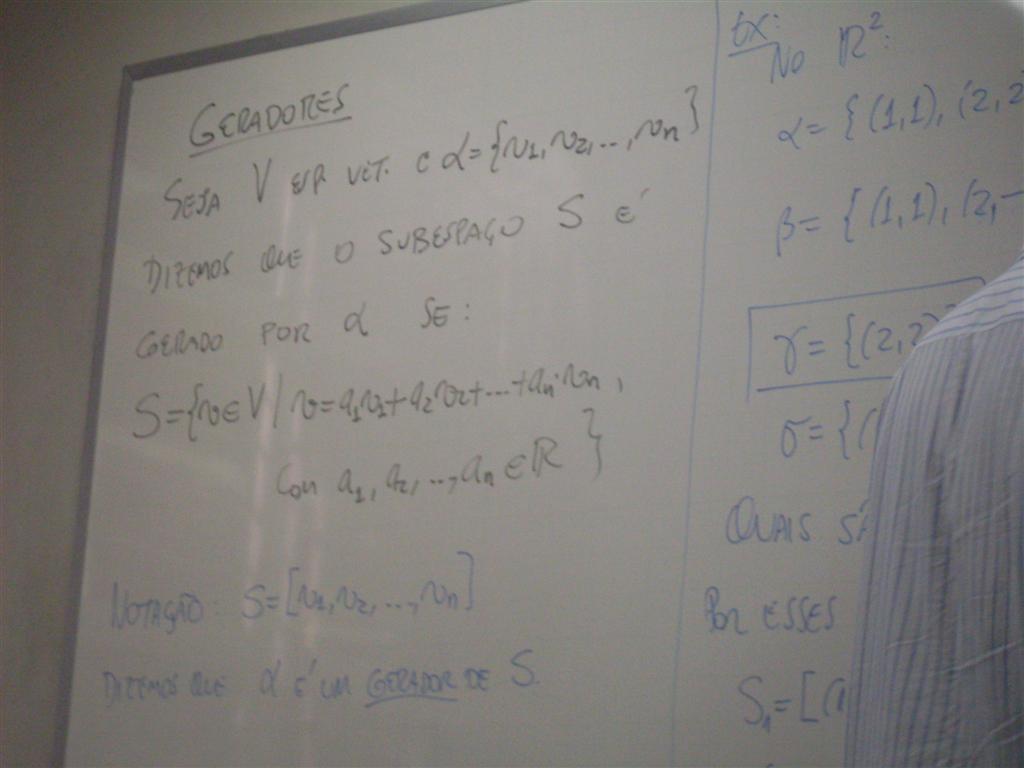 GERADORES
SEJA V ESP. VET. E α={v1,v2,...,vn}
DIZEMOS QUE O SUBESPAÇO S É
GERADO POR α SE:
S={v∈V/ v=a1v1+a2v2+...+an·vn,
COM a1, a2, ..., an ∈ ℝ}
NOTAÇÃO: S=[v1,v2,...,vn]
DIZEMOS QUE α É UM GERADOR DE S.
EX:
NO ℝ²:
α= {(1,1), (2,2
β= {(1,1), (2,-
γ= {(2,2)
σ= {(
QUAIS
POR ESSES
S1=[(